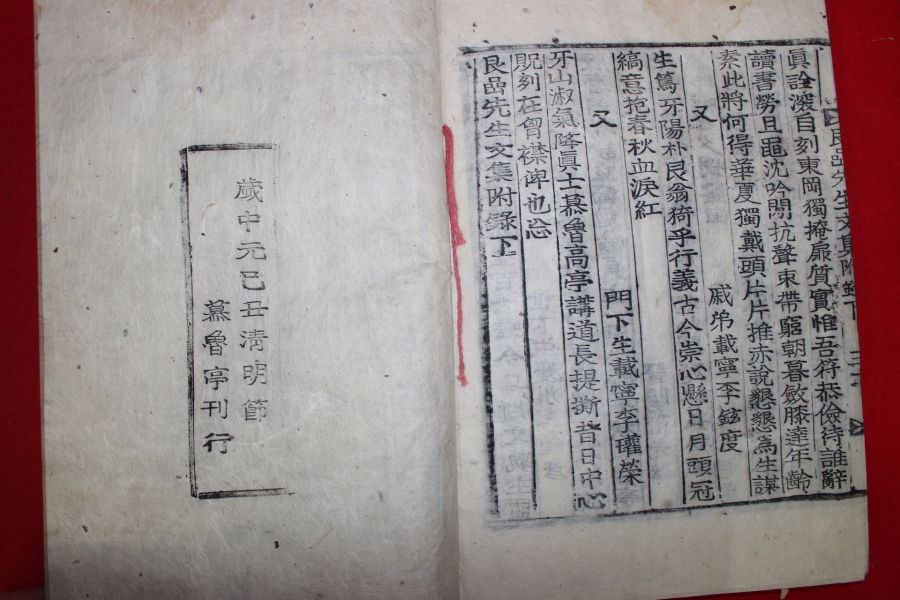 良嵒先生文集附錄下
眞詮濚自刻東岡獨掩扉質實惟吾符恭儉待誰辭
讀書勞且黽沈吟閒抗聲束帶窮朝暮斂膝達年齡
素此將何得華夏獨戴頭片片推赤說懇懇為生謀
戚弟載寧李鉉度
又
生篤牙陽朴艮翁猗乎行義古今崇心懸日月頭冠
縞意抱春秋血淚紅
門下生載寧李瓘榮
又
牙山淑氣降眞士慕魯高亭講道長提撕昔日中心
貺刻在胷襟俾也忘
良嵒先生文集附錄下
歲中元己丑淸明節
慕魯亭刊行